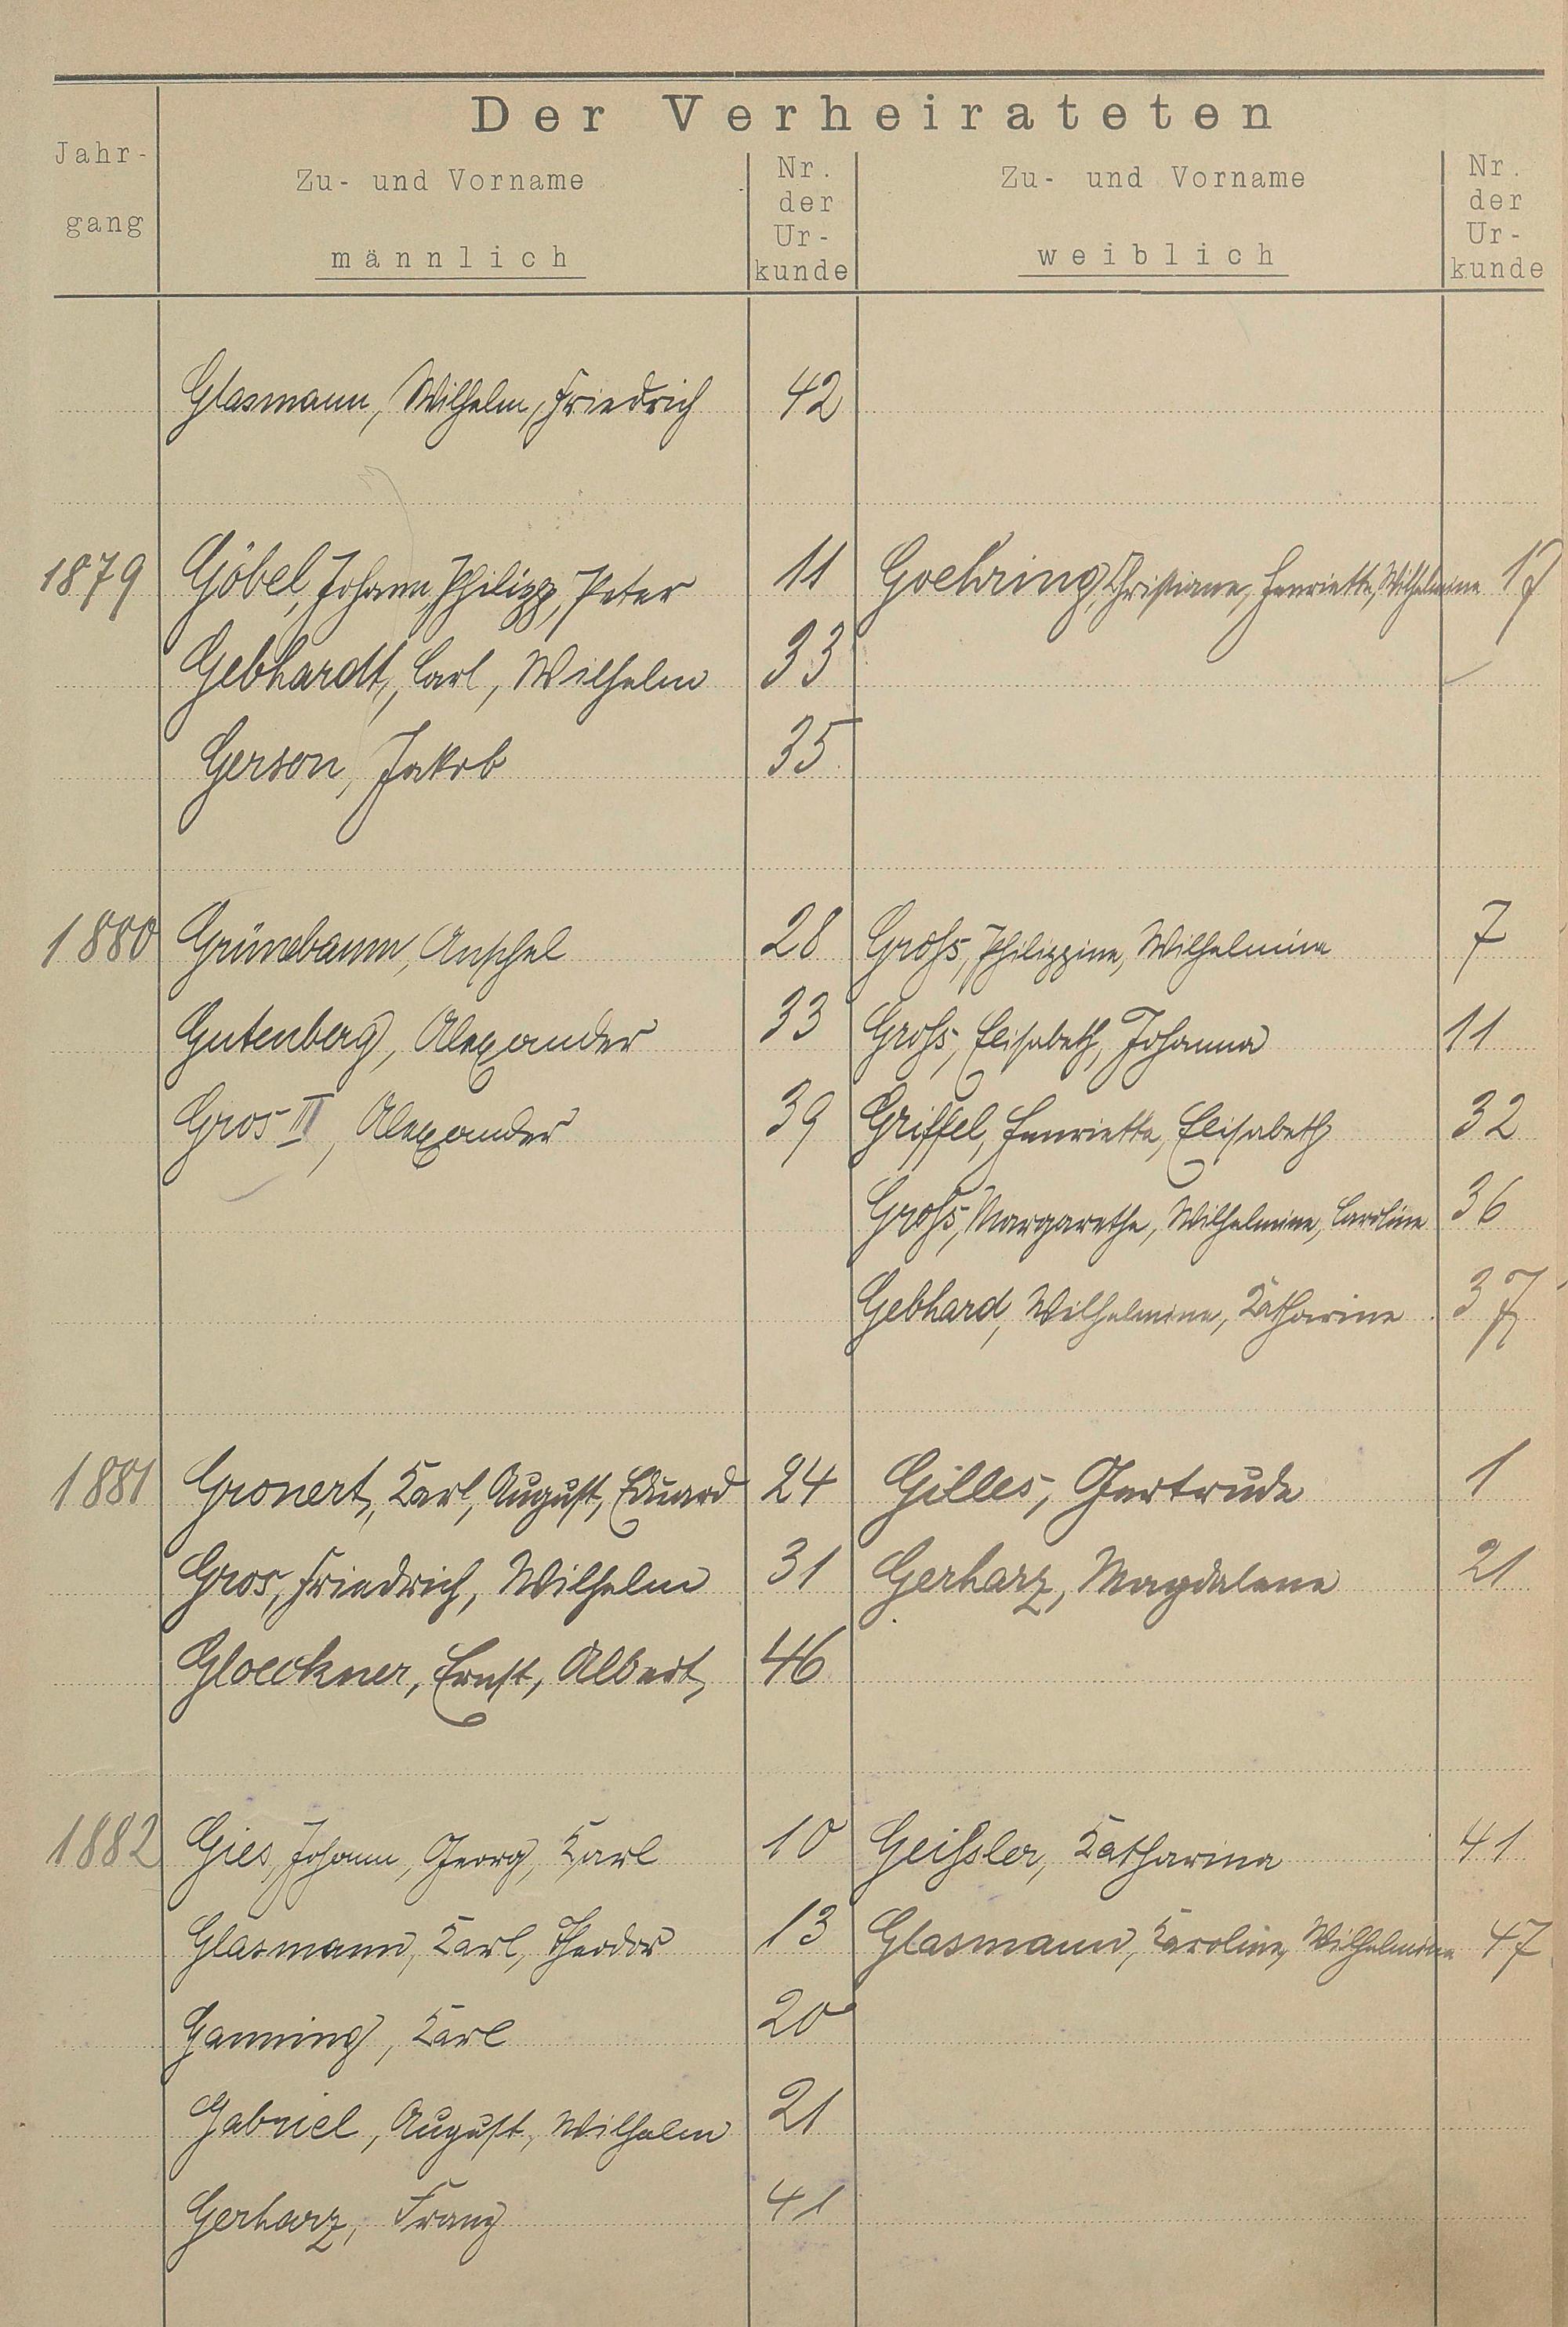 Der Verheirateten
Jahr-
gang
Zu- und Vorname
männlich
Nr.
der
Ur-
kunde
Zu- und Vorname
weiblich
Nr.
der
Ur-
kunde
Glasmann, Wilhelm, Friedrich 42
1879 Göbel, Johann, Philipp, Peter 11 Goehring, Christiane, Henriette, Wilhelmine 17
Gebhardt, Carl, Wilhelm 33
Gerson, Jakob 35
1880 Grünebaum, Anschel 28 Groß, Philippine, Wilhelmine 7
Gutenberg, Alexander 33 Groß, Elisabeth, Johanna 11
Gros III, Alexander 39 Griffel, Henriette, Elisabeth 32
Groß, Margarethe, Wilhelmine, Caroline 36
Gebhard, Wilhelmine, Katharine 37
1881 Gronert, Karl, August, Eduard 24 Gilles, Gertrude 1
Gros, Friedrich, Wilhelm 31 Gerharz, Magdalene 21
Gloeckner, Ernst, Albert, 46
1882 Gies, Johann, Georg, Karl 10 Geißler, Katharina 41
Glasmann, Karl, Theodor 13 Glasmann, Karoline, Wilhelmine 47
Ganning, Karl 20
Gabriel, August, Wilhelm 21
Gerharz, Franz 41